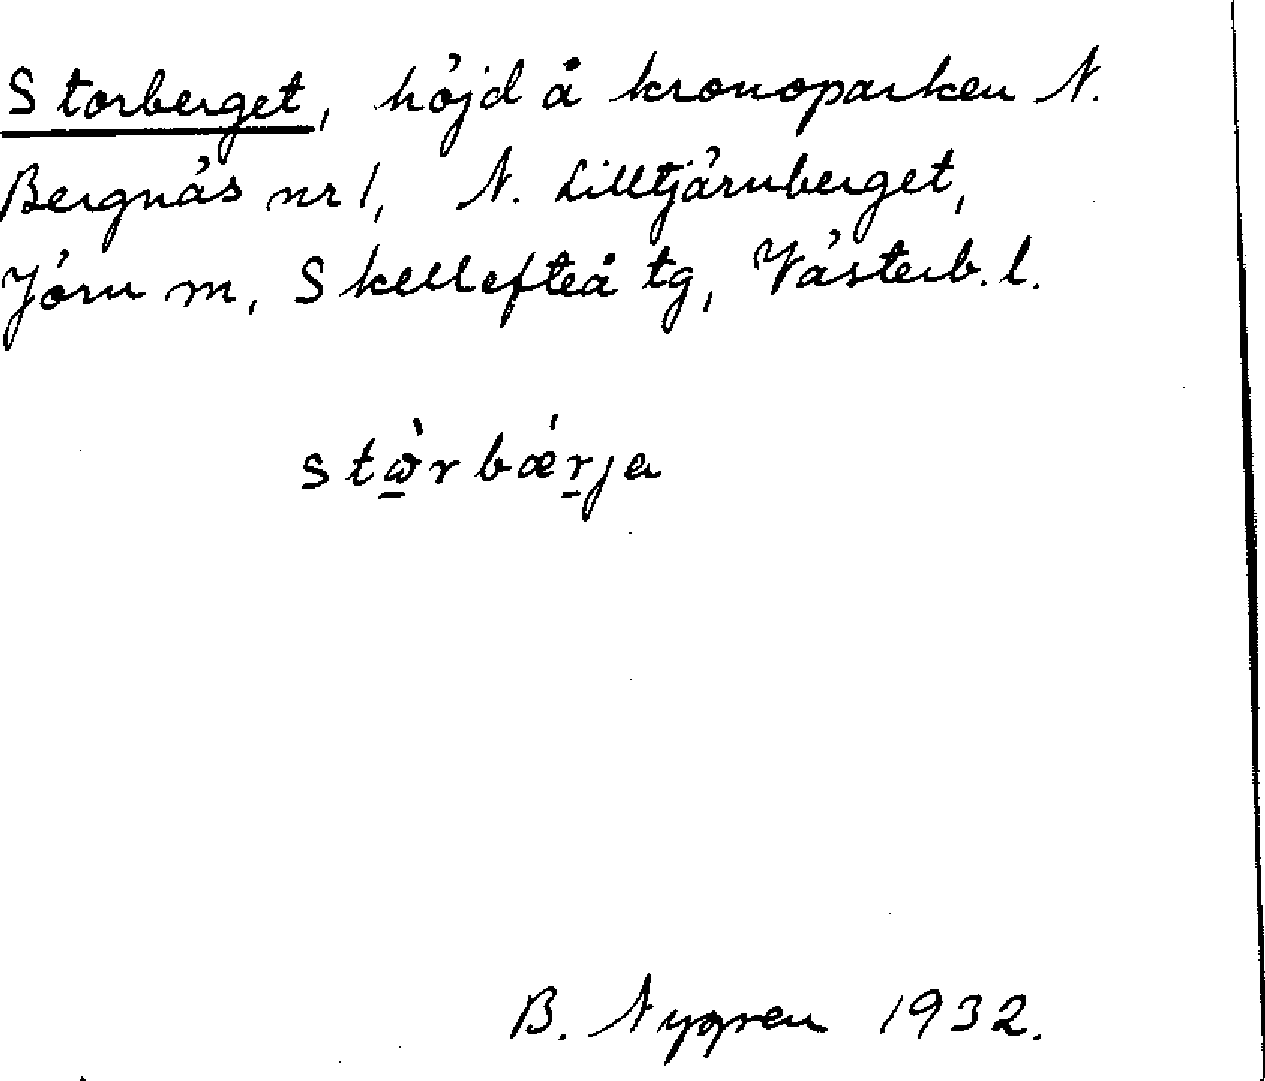 Storberget, höjd å kronoparken N.
Bergnäs nr 1, N. Lilltjärnberget,
Jörn m, Skellefteå tg, Västerb. l.
stὼ̲rbǽr̲ja
B. Nygren 1932.